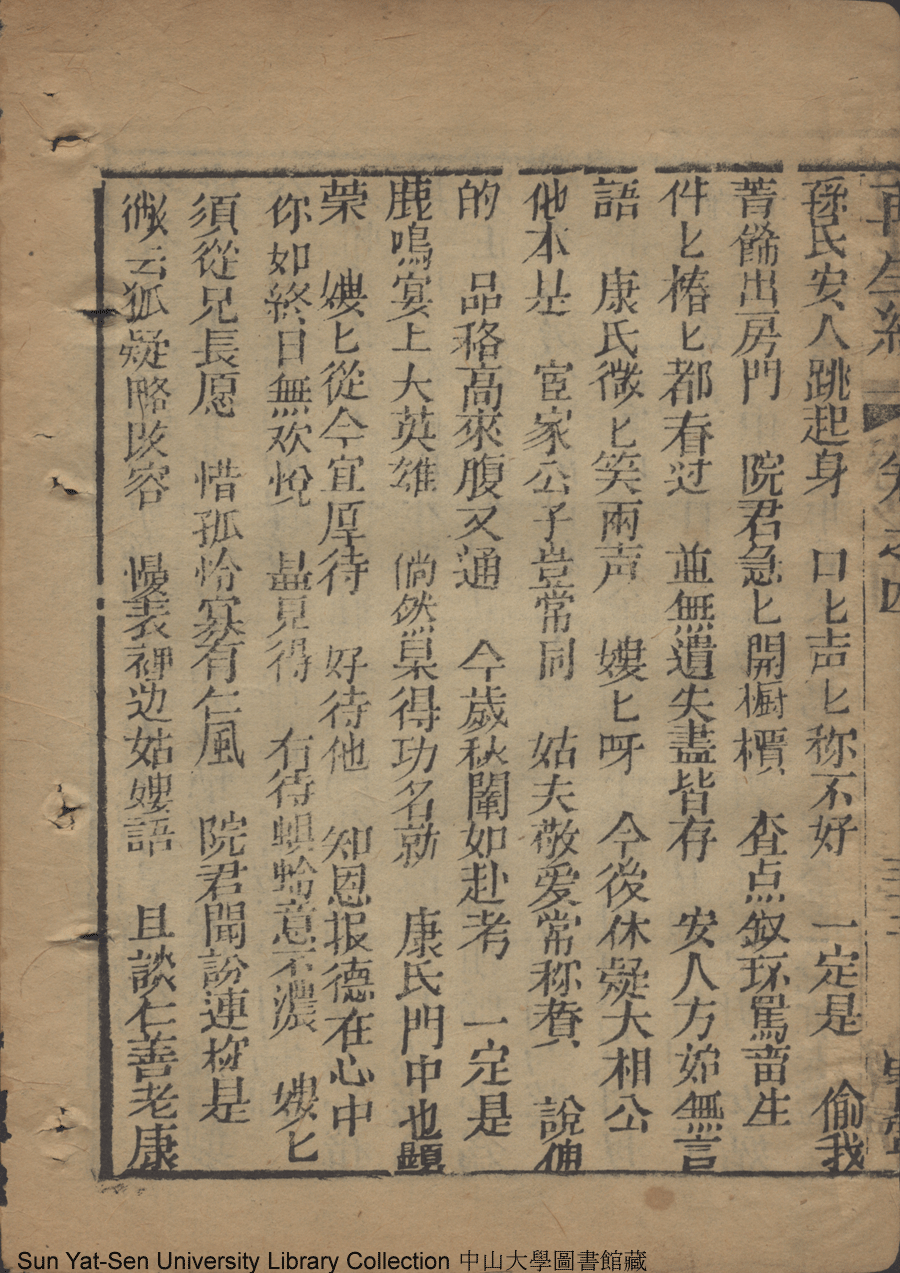 再生緣 卷之四
孫氏安人跳起身 口匕声匕称不好 一定是 偷我
菁餙出房門 院君急匕開橱櫃 查点釵环罵畜生
件匕樁匕都看过 並無遺失盡皆存 安人方始無言
語 康氏微匕笑兩声 嫂匕呀 今後休疑大相公
他本是 宦家公子豈常同 姑夫敬爱常称賛 說他
的 品格高來腹又通 今歲秋闈如赴考 一定是
鹿鳴宴上大英雄 倘然果得功名就 康氏門中也顯
荣 嫂匕從今宜厚待 好待他 知恩报德在心中
你如終日無欢悅 朂見得 有待螟蛉意不濃 嫂匕
須從兄長愿 惜孤怜寡有仁風 院君聞說連称是
微云狐疑略改容 慢表裡边姑嫂語 且談仁善老康
Sun Yat-Sen University Library Collection 中山大學圖書館藏